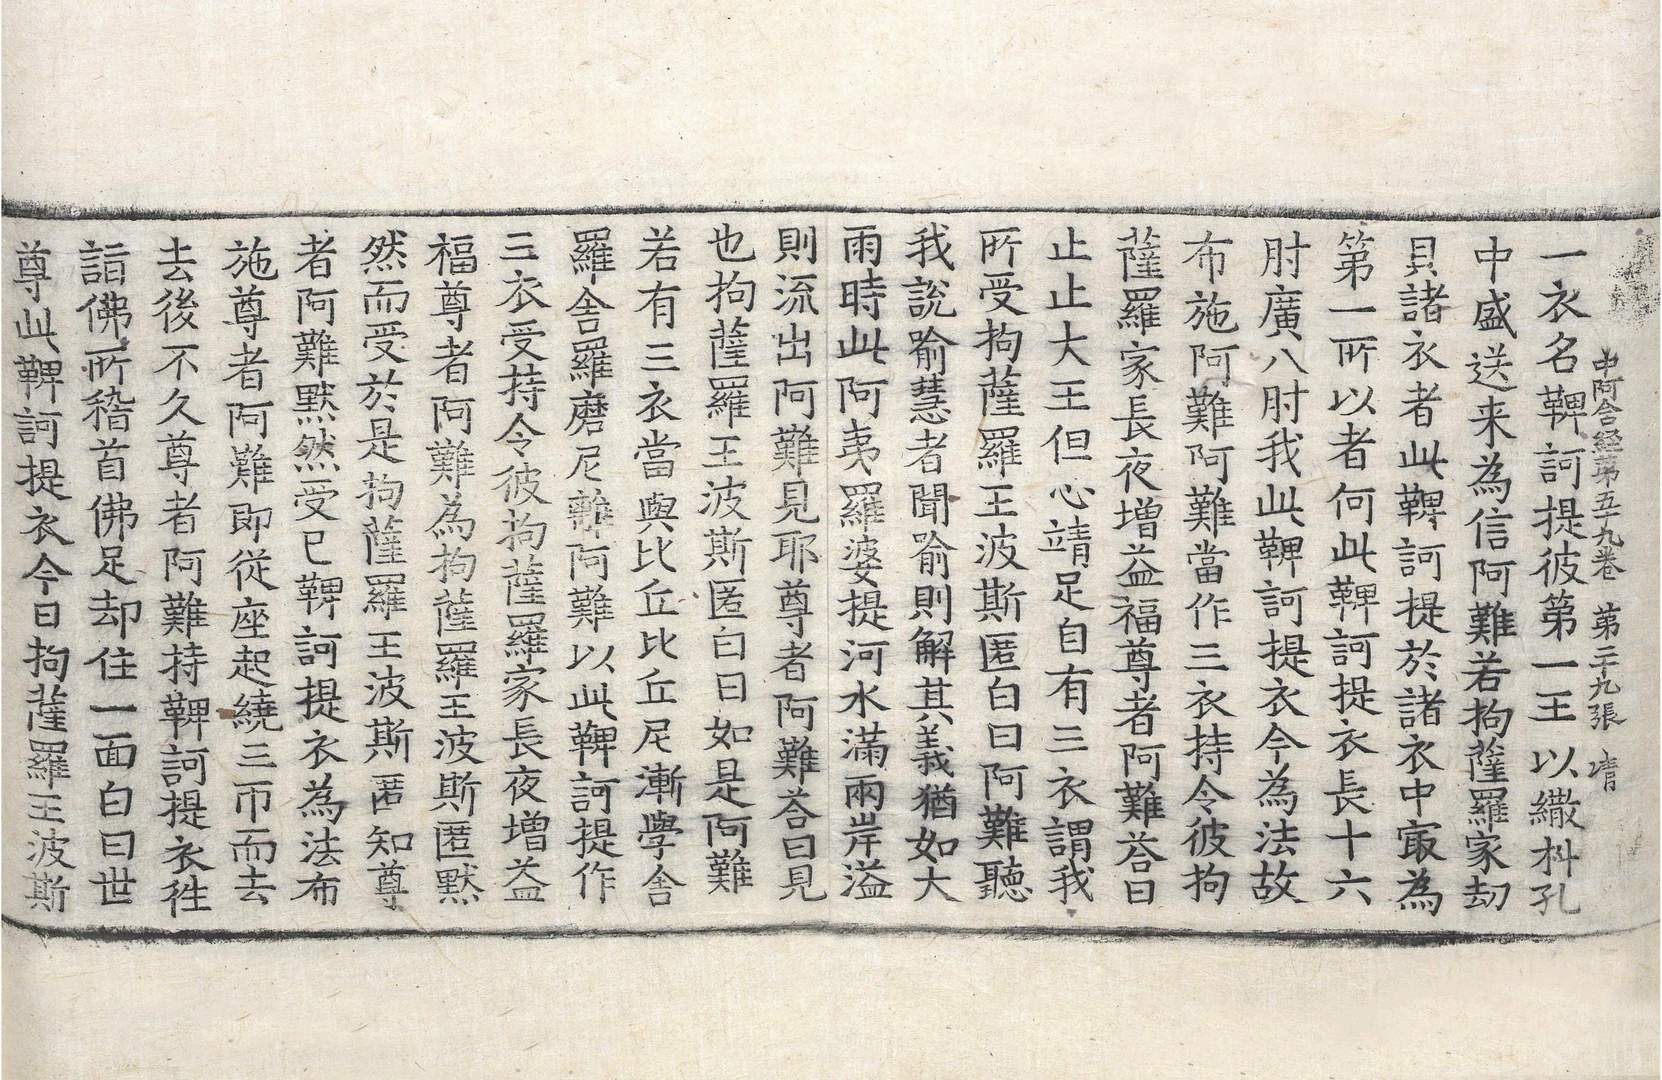 中阿含經第五十九卷　第二十九張　凊
一衣名鞞訶提彼第一王以繖枓孔
中盛送来為信阿難若拘薩羅家刧
貝諸衣者此鞞訶提於諸衣中㝡為
第一所以者何此鞞訶提衣長十六
肘廣八肘我此鞞訶提衣今為法故
布施阿難阿難當作三衣持令彼拘
薩羅家長夜增益福尊者阿難荅曰
止止大王但心靖足自有三衣謂我
所受拘薩羅王波斯匿白曰阿難聽
我說喻慧者聞喻則解其義猶如大
雨時此阿夷羅婆提河水滿兩岸溢
則流出阿難見耶尊者阿難荅曰見
也拘薩羅王波斯匿白曰如是阿難
若有三衣當與比丘比丘尼漸學舍
羅舍羅磨尼離阿難以此鞞訶提作
三衣受持令彼拘薩羅家長夜增益
福尊者阿難為拘薩羅王波斯匿默
然而受於是拘薩羅王波斯匿知尊
者阿難默然受已鞞訶提衣為法布
施尊者阿難即從座起繞三帀而去
去後不久尊者阿難持鞞訶提衣往
詣佛所稽首佛足却住一面白曰世
尊此鞞訶提衣今日拘薩羅王波斯